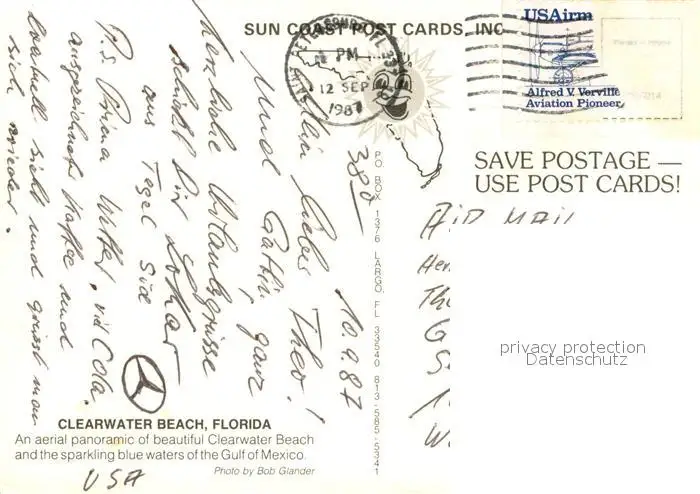 SUN COAST POST CARDS, INC
PM
12 SEP
1987
USAirm
Alfred V. Verville
Aviation Pioneer
SAVE POSTAGE —
USE POST CARDS!
AIR MAIL
privacy protection
Datenschutz
P.O. BOX 1376 LARGO, FL 33540 813-585-5341
10.9.87
Lieber Theo!
und Gattin, ganz
herzliche Urlaubsgrüsse
schickt Dir Lothar
aus Tegel Süd
P.S. Prima Wetter, viel Cola.
Kaffee und
sieht und man
sich wieder.
CLEARWATER BEACH, FLORIDA
An aerial panoramic of beautiful Clearwater Beach
and the sparkling blue waters of the Gulf of Mexico.
Photo by Bob Glander
USA